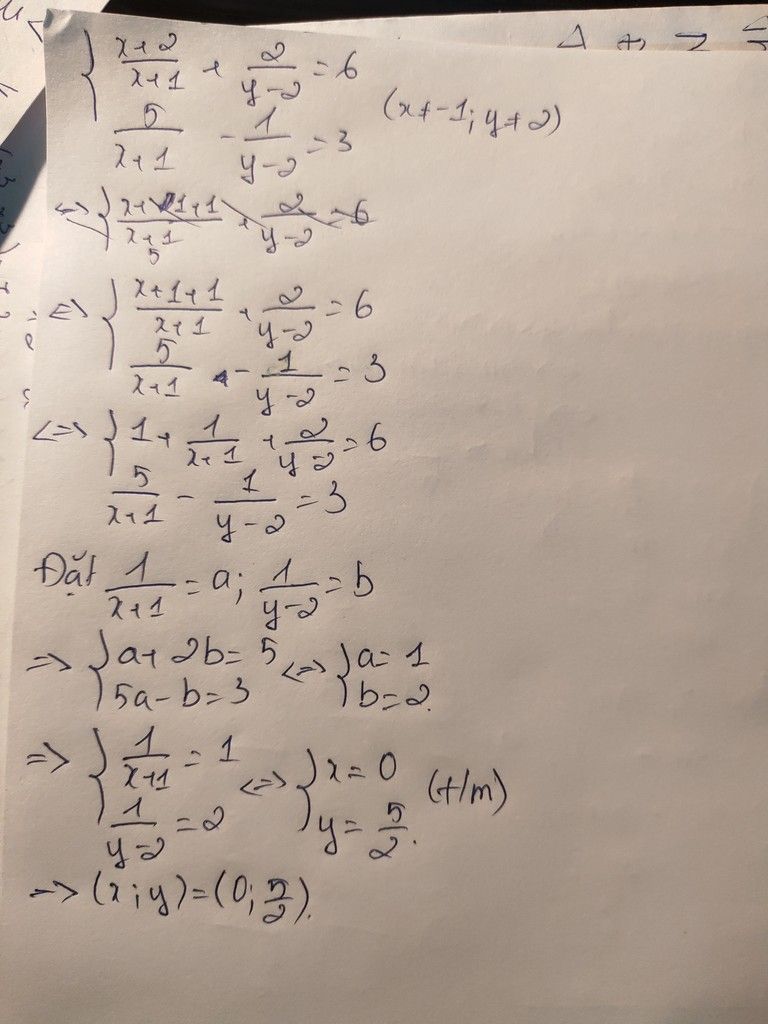 { (x+2)/(x+1) + 2/(y-2) = 6
5/(x+1) - 1/(y-2) = 3 (x≠-1; y≠2)
<=> { (x+1+1)/(x+1) + 2/(y-2) = 6
5
<=> { (x+1+1)/(x+1) + 2/(y-2) = 6
5/(x+1) - 1/(y-2) = 3
<=> { 1 + 1/(x+1) + 2/(y-2) = 6
5/(x+1) - 1/(y-2) = 3
Đặt 1/(x+1) = a; 1/(y-2) = b
=> { a+2b=5 <=> { a=1
5a-b=3 b=2.
=> { 1/(x+1) = 1 <=> { x=0 (t/m)
1/(y-2) = 2 y=5/2.
=> (x;y)=(0;5/2).